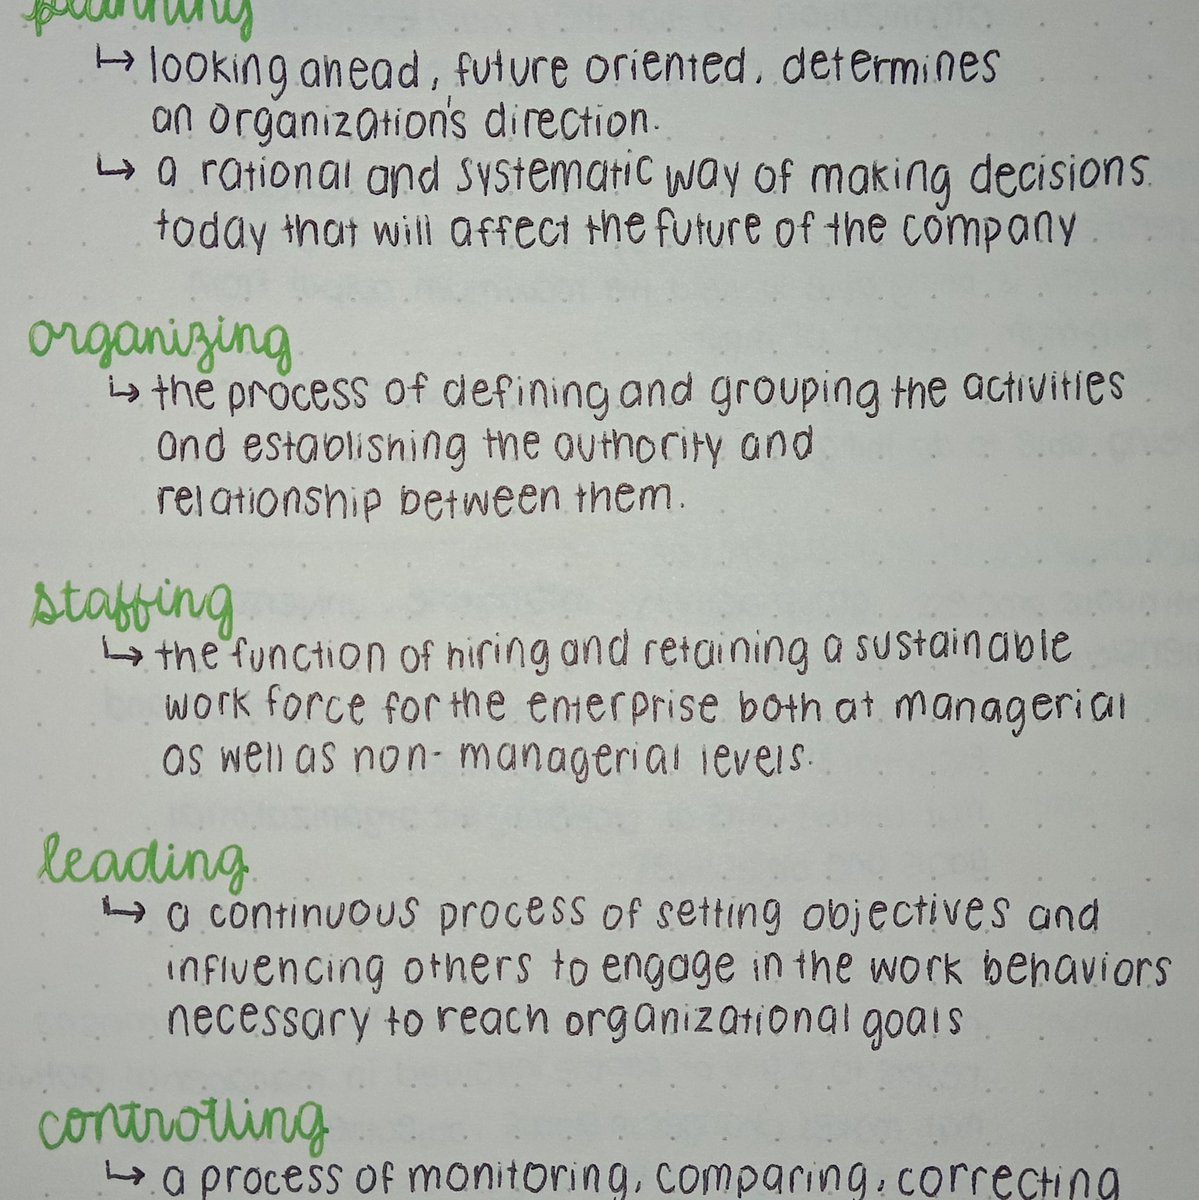 planning
↳ looking ahead, future oriented, determines
an organization's direction.
↳ a rational and systematic way of making decisions
today that will affect the future of the company
organizing
↳ the process of defining and grouping the activities
and establishing the authority and
relationship between them.
staffing
↳ the function of hiring and retaining a sustainable
work force for the enterprise both at managerial
as well as non-managerial levels.
leading
↳ a continuous process of setting objectives and
influencing others to engage in the work behaviors
necessary to reach organizational goals
controlling
↳ a process of monitoring, comparing, correcting